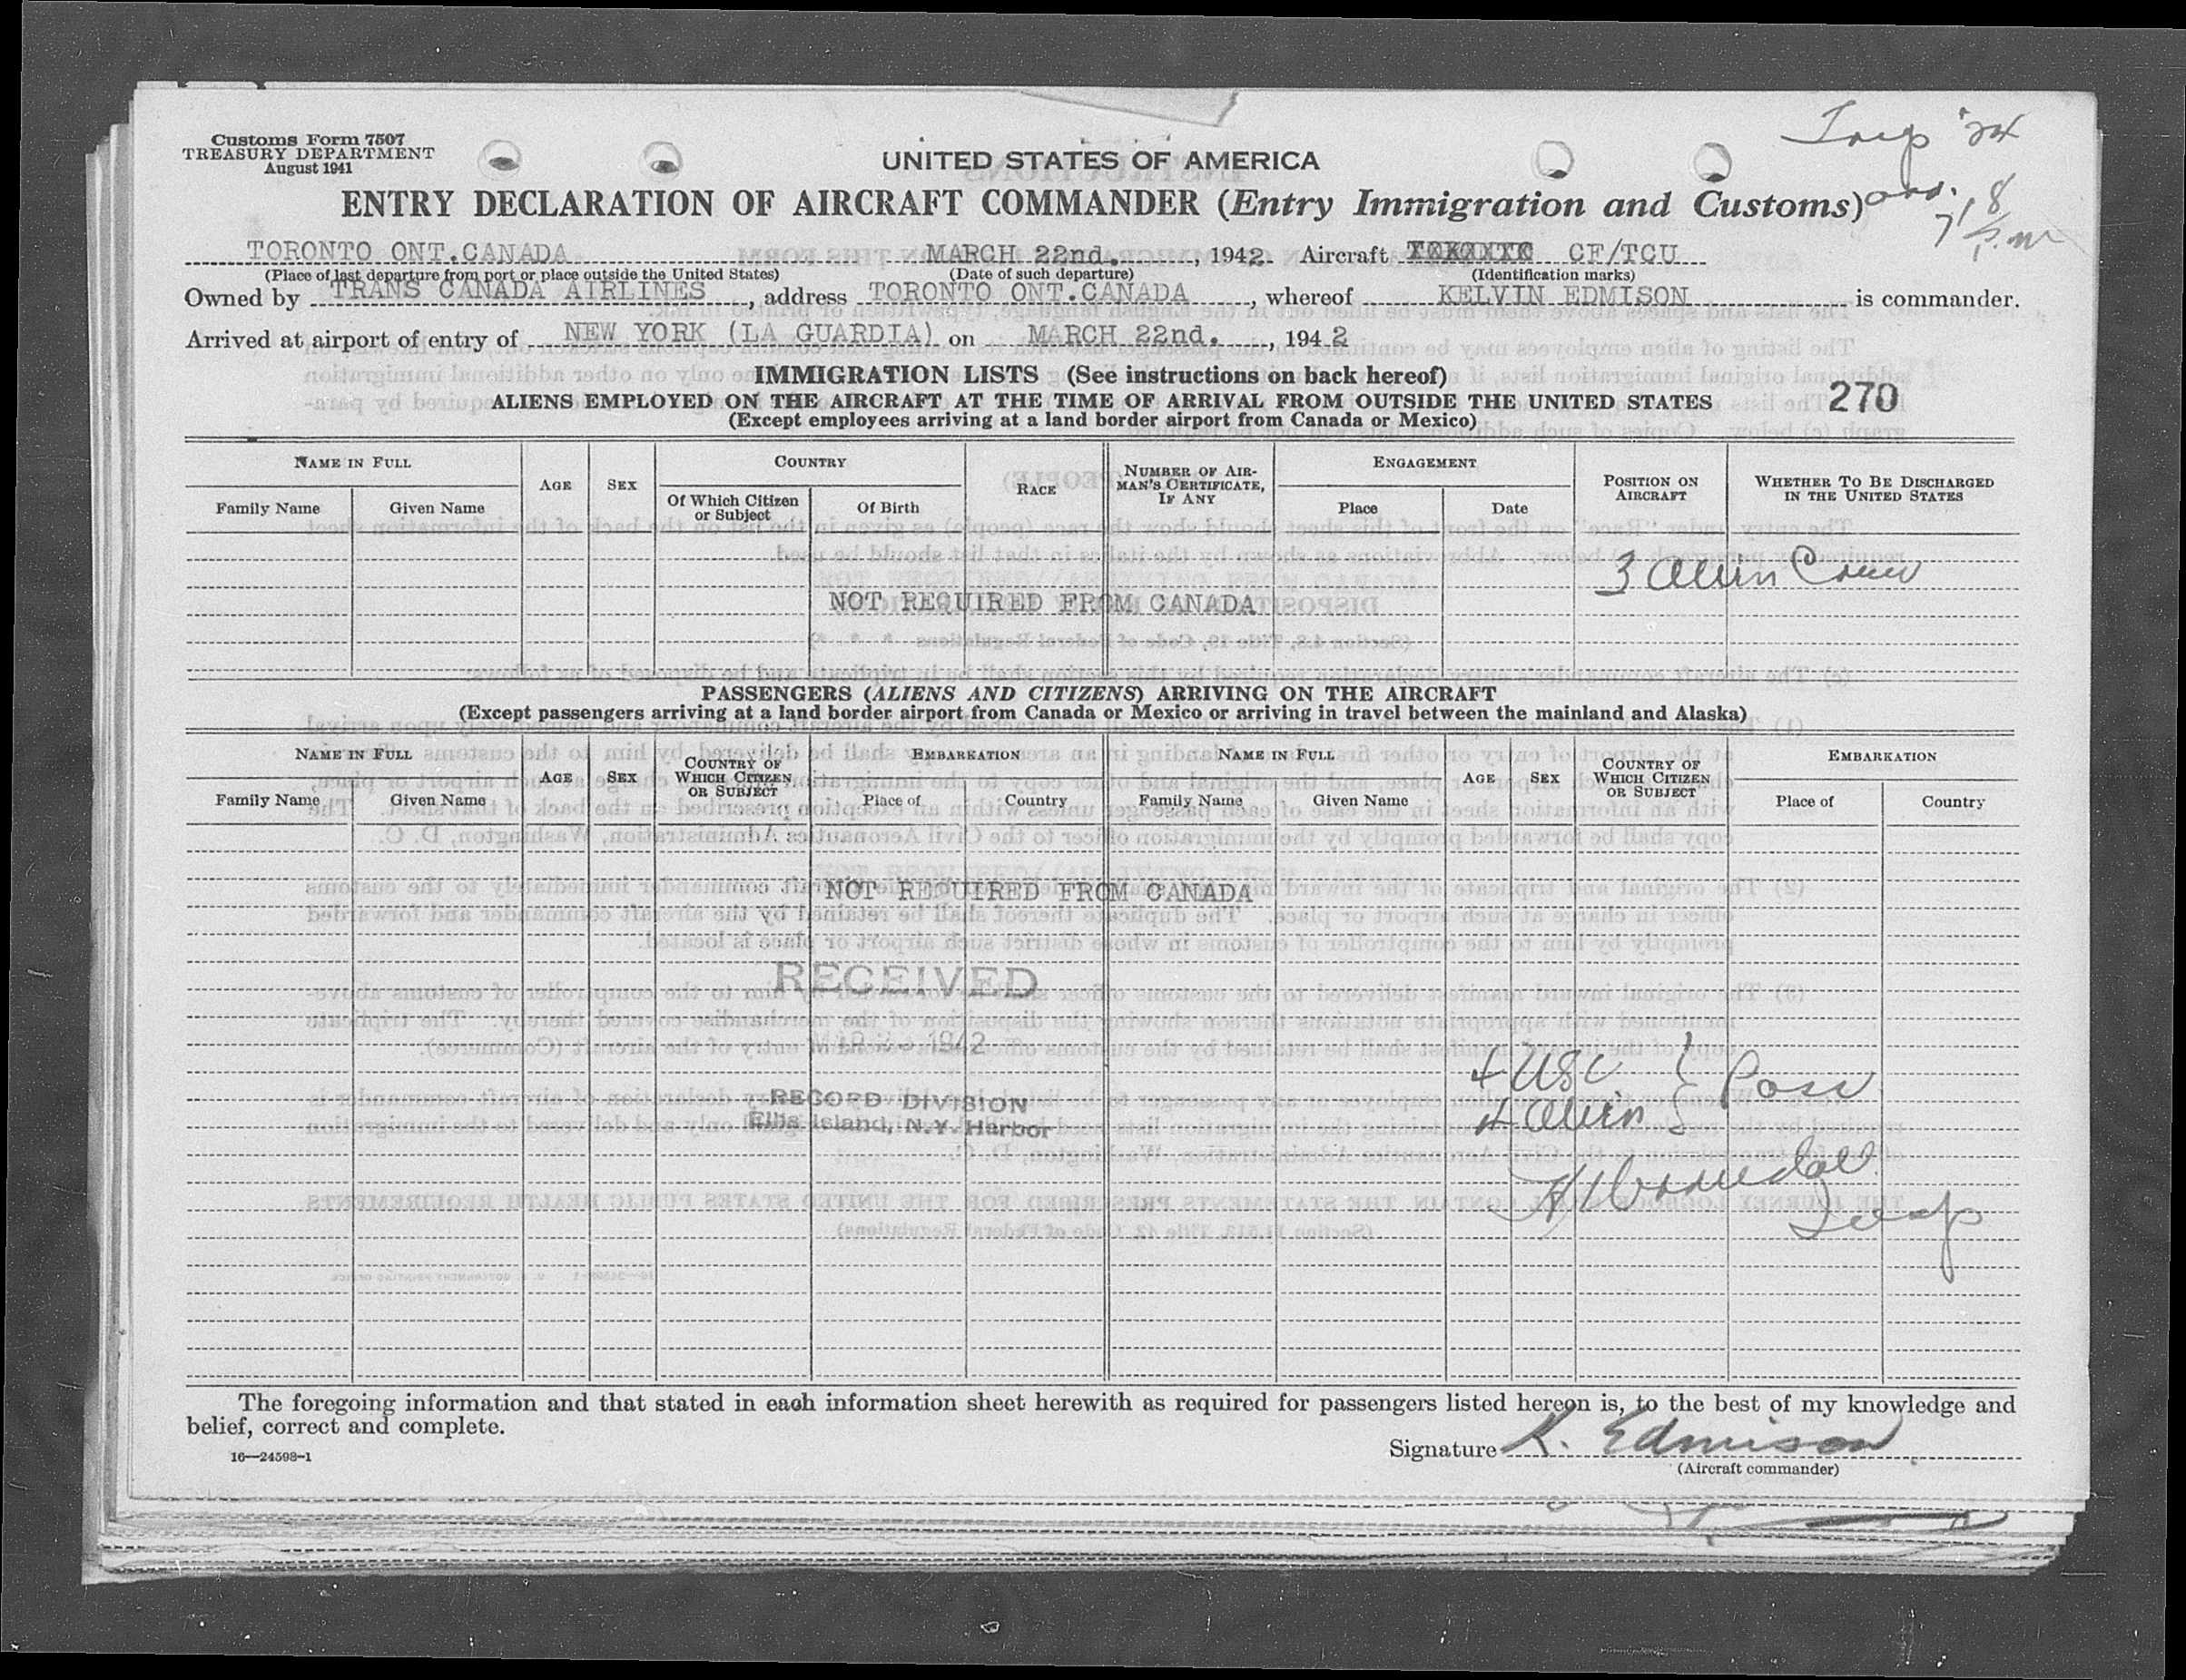 Customs Form 7507
TREASURY DEPARTMENT
August 1941
UNITED STATES OF AMERICA
ENTRY DECLARATION OF AIRCRAFT COMMANDER (Entry Immigration and Customs)
Trip
7 18
p.m
TORONTO ONT.CANADA MARCH 22nd. , 1942. Aircraft CF/TCU
(Place of last departure from port or place outside the United States) (Date of such departure) (Identification marks)
Owned by TRANS CANADA AIRLINES , address TORONTO ONT.CANADA , whereof KELVIN EDMISON is commander.
Arrived at airport of entry of NEW YORK (LA GUARDIA) on MARCH 22nd. , 1942
IMMIGRATION LISTS (See instructions on back hereof)
270
ALIENS EMPLOYED ON THE AIRCRAFT AT THE TIME OF ARRIVAL FROM OUTSIDE THE UNITED STATES
(Except employees arriving at a land border airport from Canada or Mexico)
NAME IN FULL AGE SEX COUNTRY RACE NUMBER OF AIRMAN'S CERTIFICATE, IF ANY ENGAGEMENT POSITION ON AIRCRAFT WHETHER TO BE DISCHARGED IN THE UNITED STATES
Family Name Given Name Of Which Citizen or Subject Of Birth Place Date
3 Alien Crew
NOT REQUIRED FROM CANADA
PASSENGERS (ALIENS AND CITIZENS) ARRIVING ON THE AIRCRAFT
(Except passengers arriving at a land border airport from Canada or Mexico or arriving in travel between the mainland and Alaska)
NAME IN FULL AGE SEX COUNTRY OF WHICH CITIZEN OR SUBJECT EMBARKATION NAME IN FULL AGE SEX COUNTRY OF WHICH CITIZEN OR SUBJECT EMBARKATION
Family Name Given Name Place of Country Family Name Given Name Place of Country
NOT REQUIRED FROM CANADA
RECEIVED
1942
USC
Pass
Alien
RECORD DIVISION
Ellis Island, N.Y. Harbor
Insp
The foregoing information and that stated in each information sheet herewith as required for passengers listed hereon is, to the best of my knowledge and
belief, correct and complete.
Signature K. Edmison
16—24598-1
(Aircraft commander)